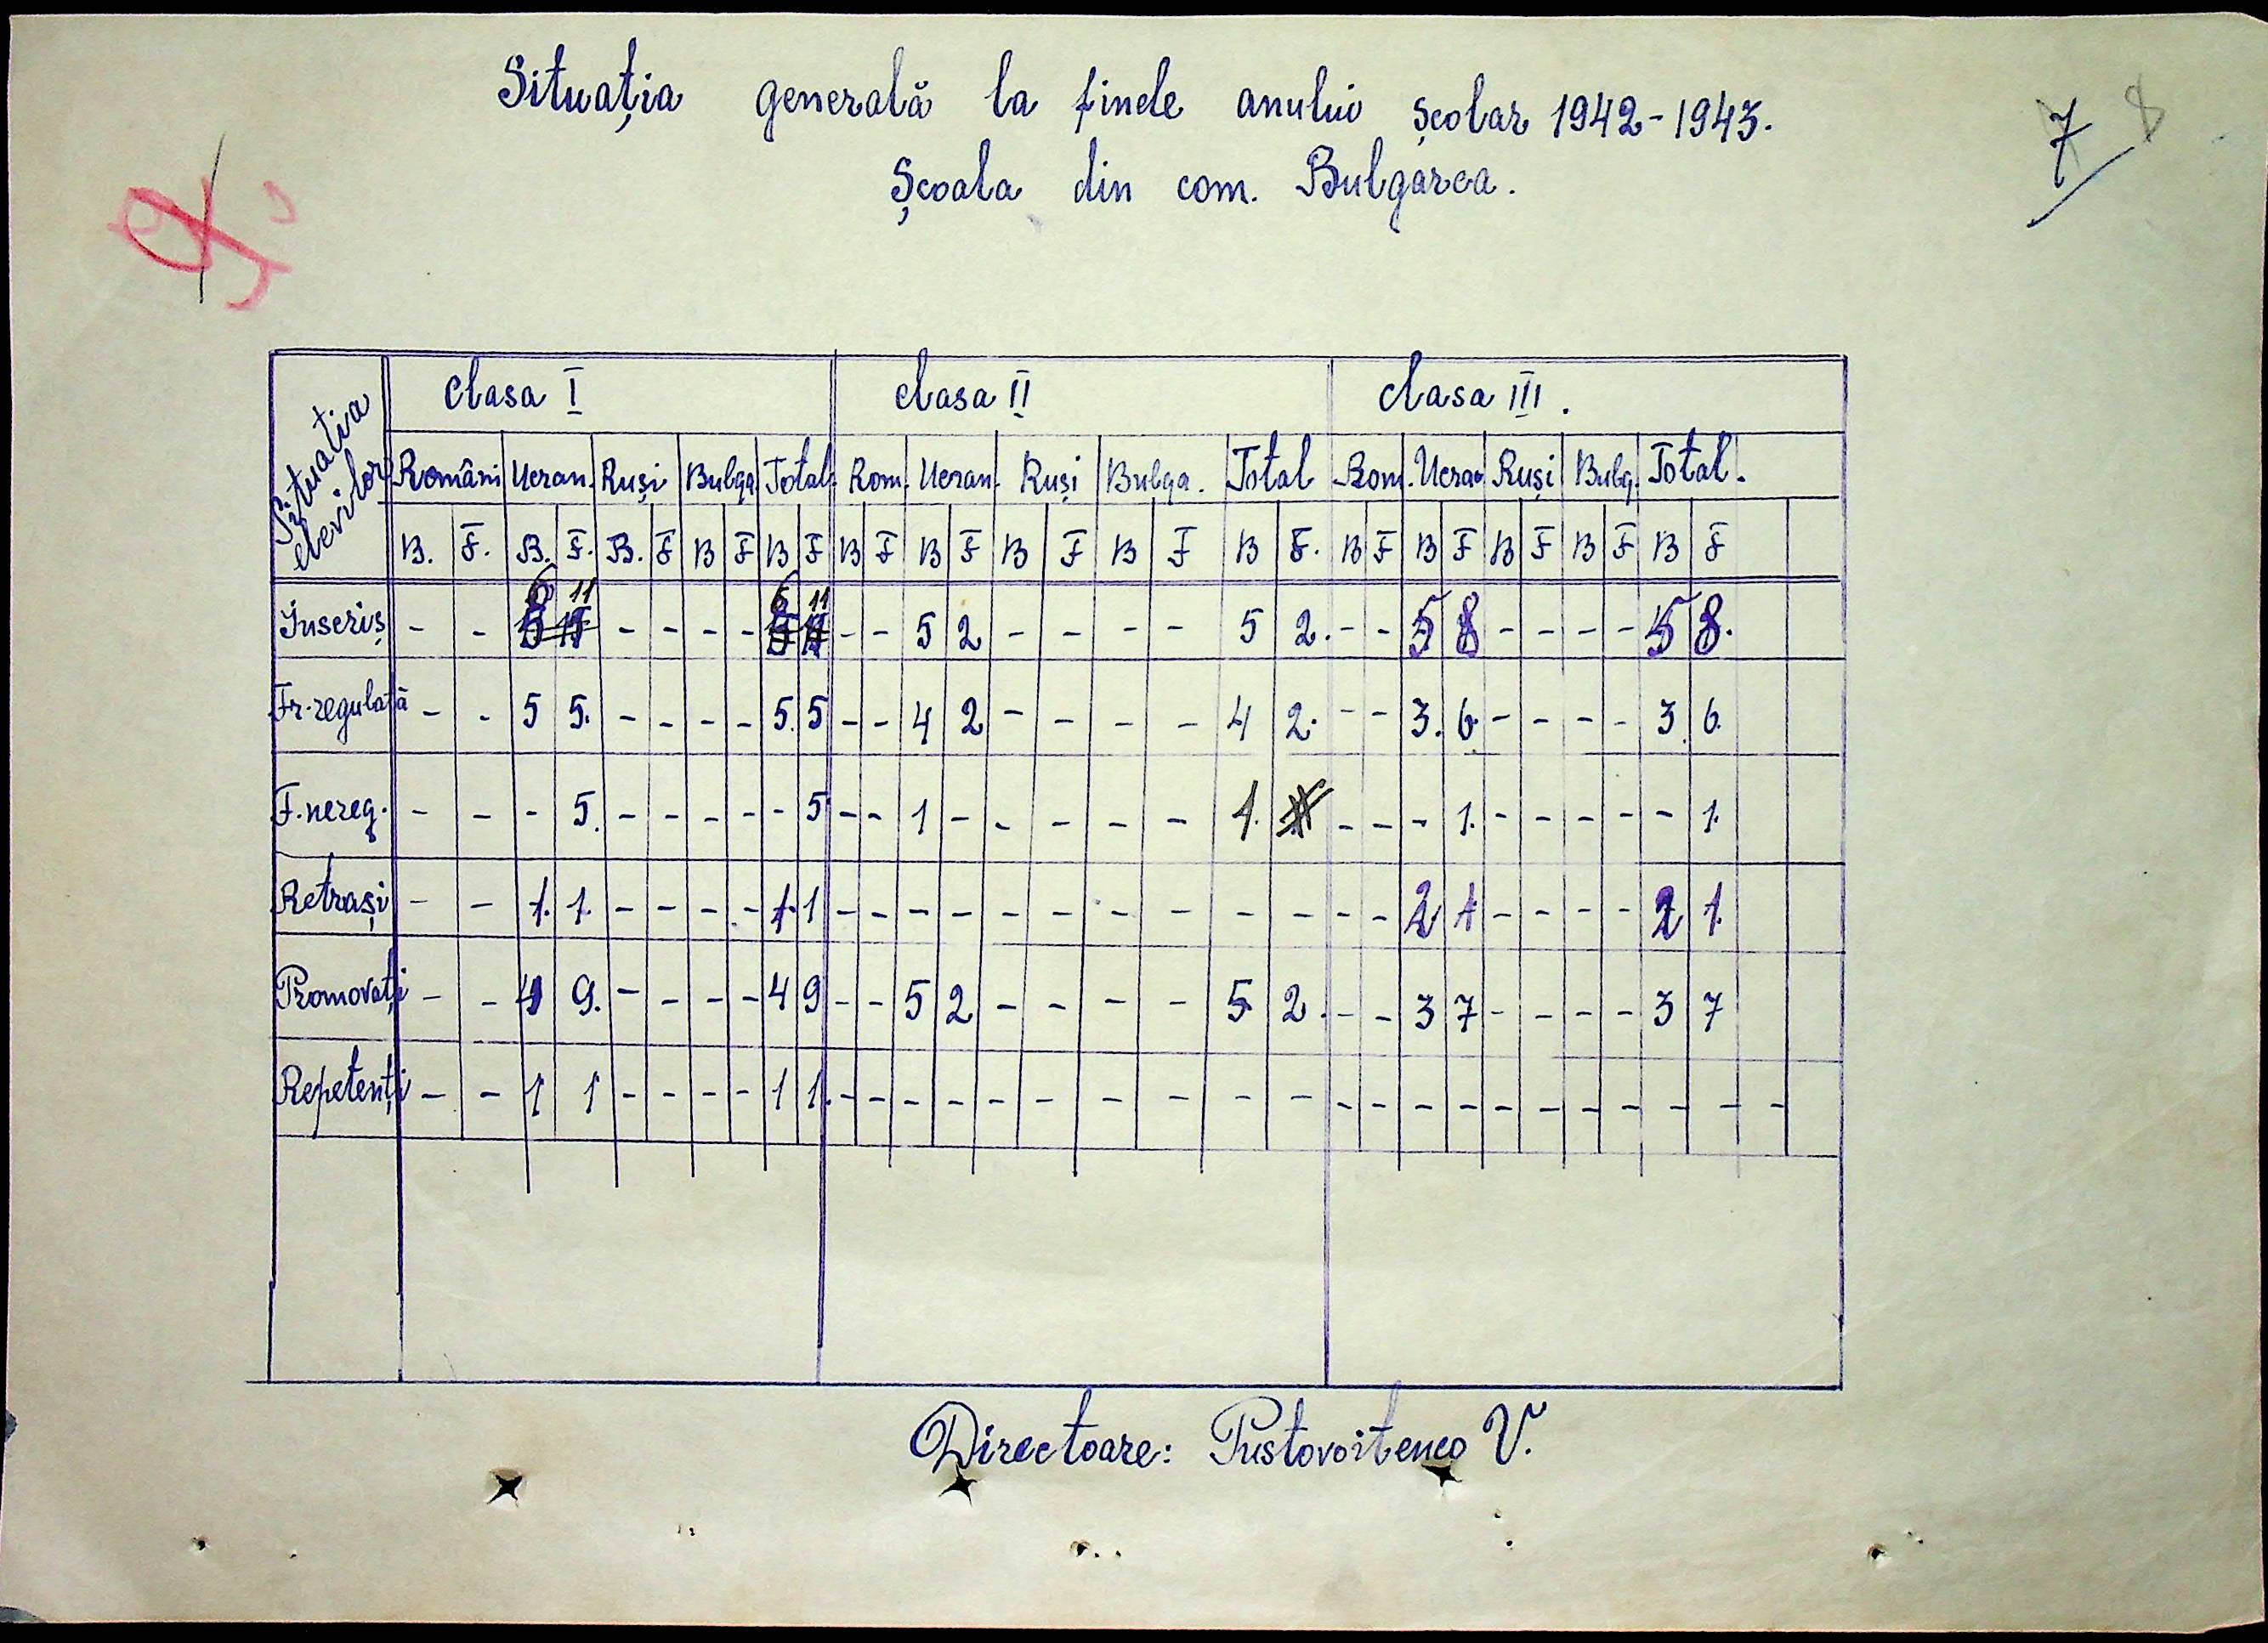 Situația generală la finele anului școlar 1942-1943.
Școala din com. Bulgarca.
7 8
Situatia elevilor
clasa I clasa II clasa III.
Români Ucran. Ruși Bulga Total Rom. Ucran. Ruși Bulga. Total Rom. Ucran Ruși Bulg. Total.
B. F. B. F. B. F B F B F B F B F B F B F B F. B F B F B F B F B F
Inscriș - - 6 11 - - - - 6 11 - - 5 2 - - - - 5 2. - - 5 8 - - - - 5 8.
Fr. regulată - - 5 5. - - - - 5. 5 - - 4 2 - - - - 4 2. - - 3. 6. - - - - 3. 6.
F. nereg. - - - 5. - - - - - 5 - - 1 - - - - - 1. - - - 1. - - - - - 1.
Retrași - - 1. 1. - - - - 1. 1 - - - - - - - - - - - - 2 1 - - - - 2 1.
Promovați - - 4 9. - - - - 4 9 - - 5 2 - - - - 5 2. - - 3 7 - - - - 3 7
Repetenți - - 1 1 - - - - 1 1. - - - - - - - - - - - - - - - - - - - - -
Directoare: Pustovoitenco V.